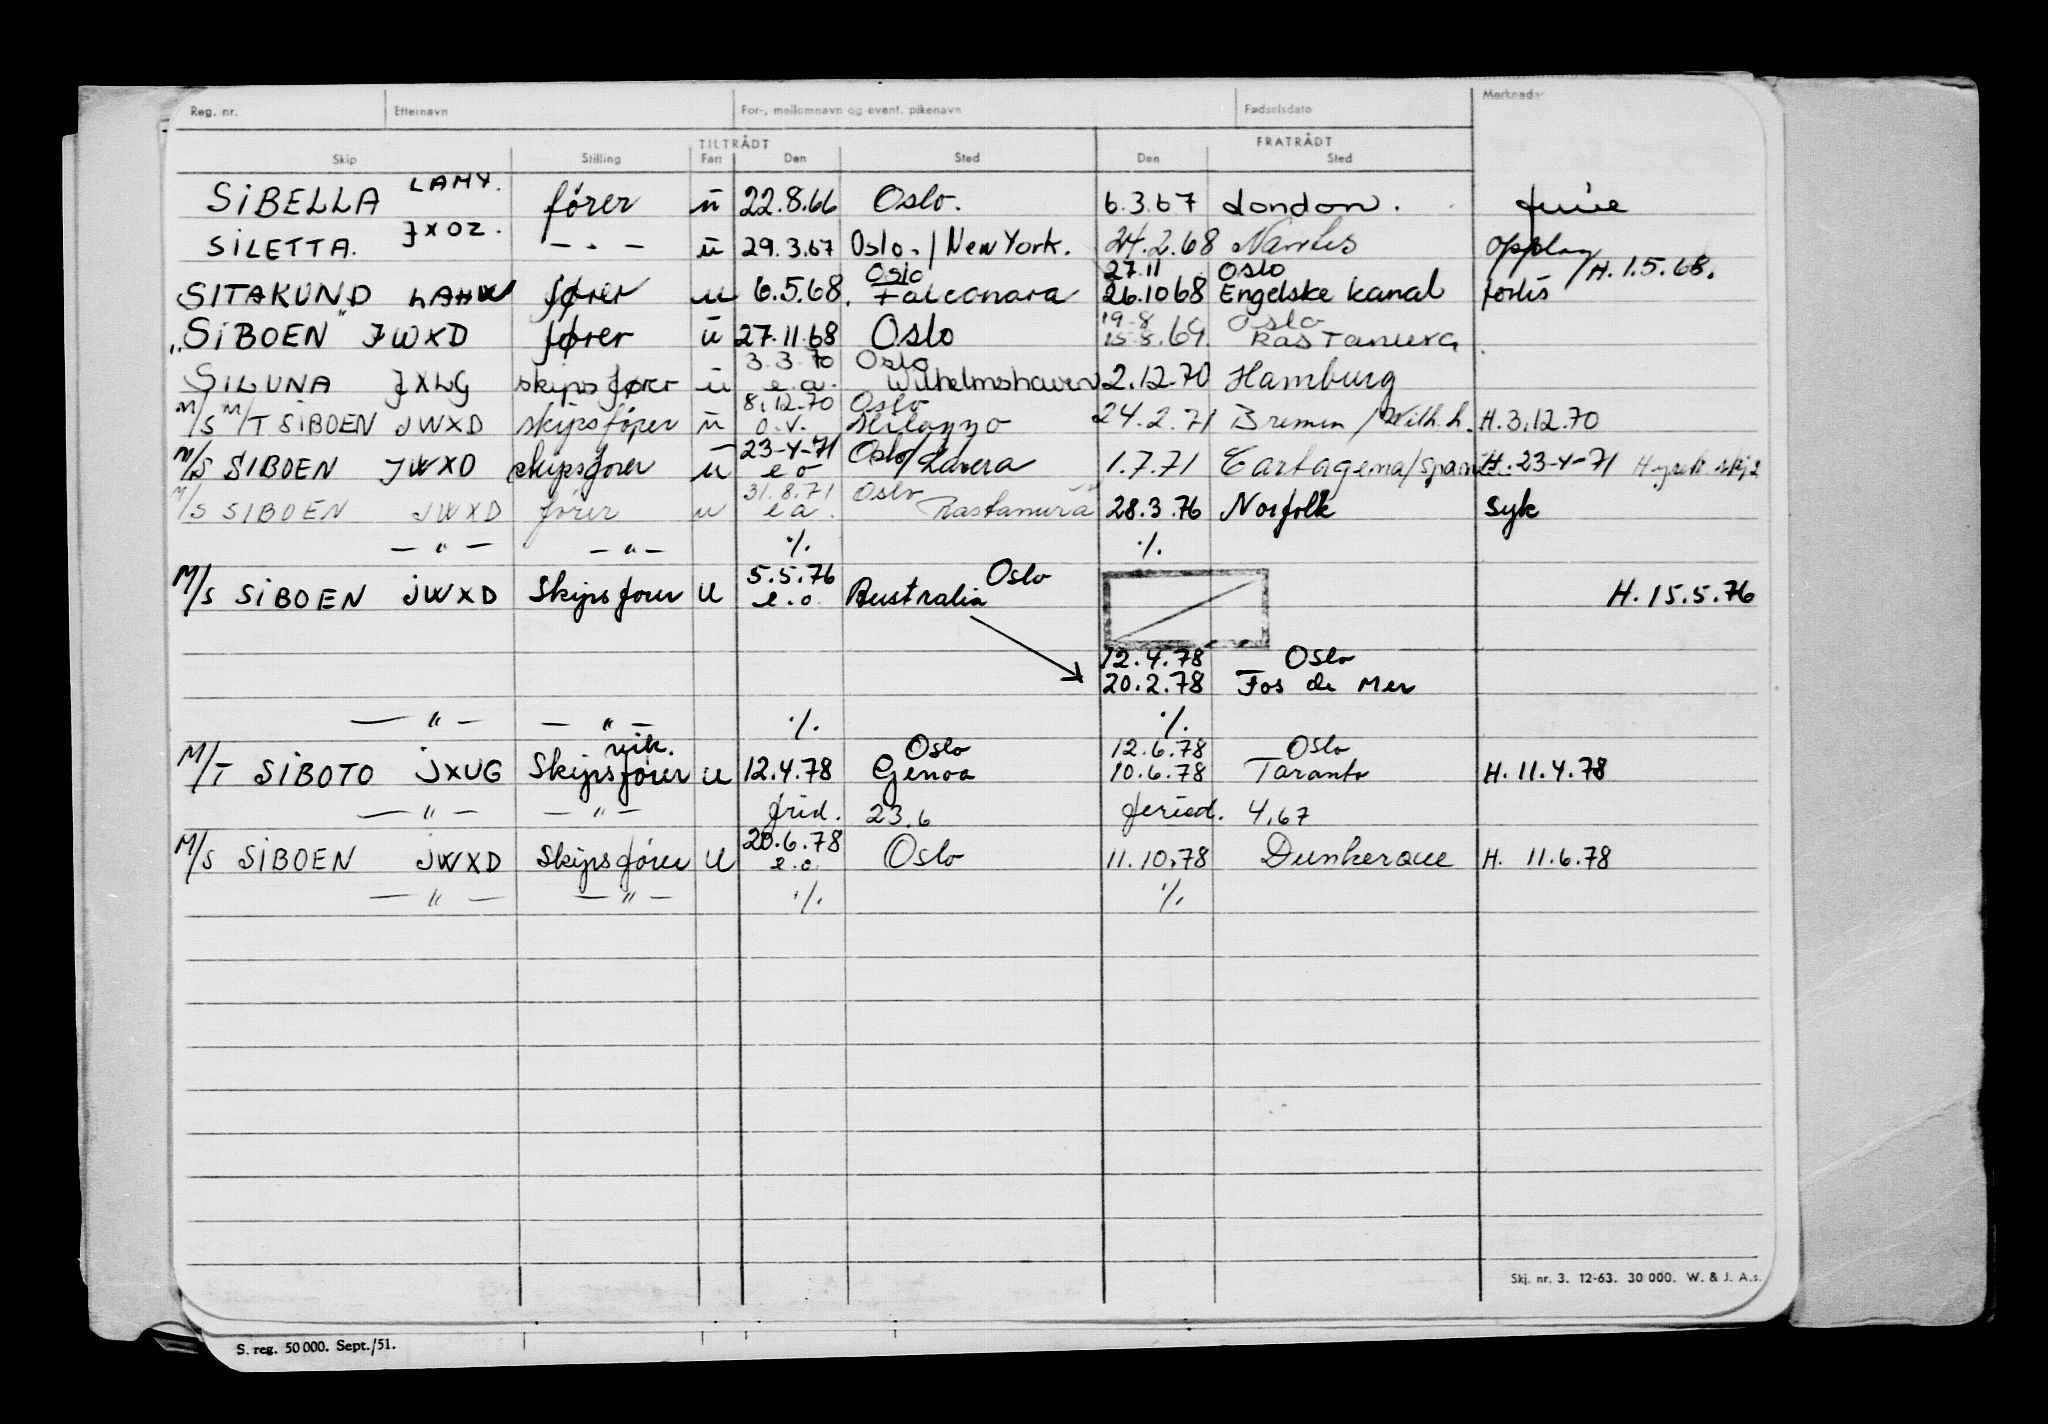 Reg. nr. Efternavn For-, mellomnavn og event. pikenavn Fødselsdato Merknader
TILTRÅDT FRATRÅDT
Skip Stilling Fart Den Sted Den Sted
SIBELLA LAMY. fører u 22.8.66 Oslo. 6.3.67 London. ferie
SILETTA. JXOZ. — " — u 29.3.67 Oslo. / New York. 24.2.68 Nantes opplag
Oslo 27.11 Oslo /H. 1.5.68.
SITAKUND LAHW fører u 6.5.68. Falconara 26.10 68 Engelske kanal forlis
19-8 Oslo
"SIBOEN" JWXD fører u 27.11.68 Oslo 15.8.69. Ras Tanura
3.3.70 Oslo
SILUNA JXLG skipsfører u e.a. Wilhelmshaven 2.12.70 Hamburg
8.12.70 Oslo
M/S M/T SIBOEN JWXD skipsfører u o.v. Milazzo 24.2.71 Bremen / Wilh.h. H. 3.12.70
23-4-71
M/S SIBOEN JWXD skipsfører u e o Oslo/Lavera 1.7.71 Cartagena/Spania H. 23-4-71
31.8.71 Oslo
M/S SIBOEN JWXD fører u e a. Rastanura 28.3.76 Norfolk Syk
— " — — " — ./. ./.
5.5.76 Oslo
M/S SIBOEN JWXD Skipsfører U e.o. Australia H. 15.5.76
12.4.78 Oslo
20.2.78 Fos de Mer
— " — — " — ./. ./.
vik. Oslo 12.6.78 Oslo
M/T SIBOTO JXUG Skipsfører u 12.4.78 Genoa 10.6.78 Taranto H. 11.4.78
— " — — " — frid. 23.6 feried. 4,67
20.6.78
M/S SIBOEN JWXD Skipsfører U e.o. Oslo 11.10.78 Dunkerque H. 11.6.78
— " — — " — ./. ./.
Skj. nr. 3. 12-63. 30 000. W. & J. A.s.
S. reg. 50 000. Sept./51.